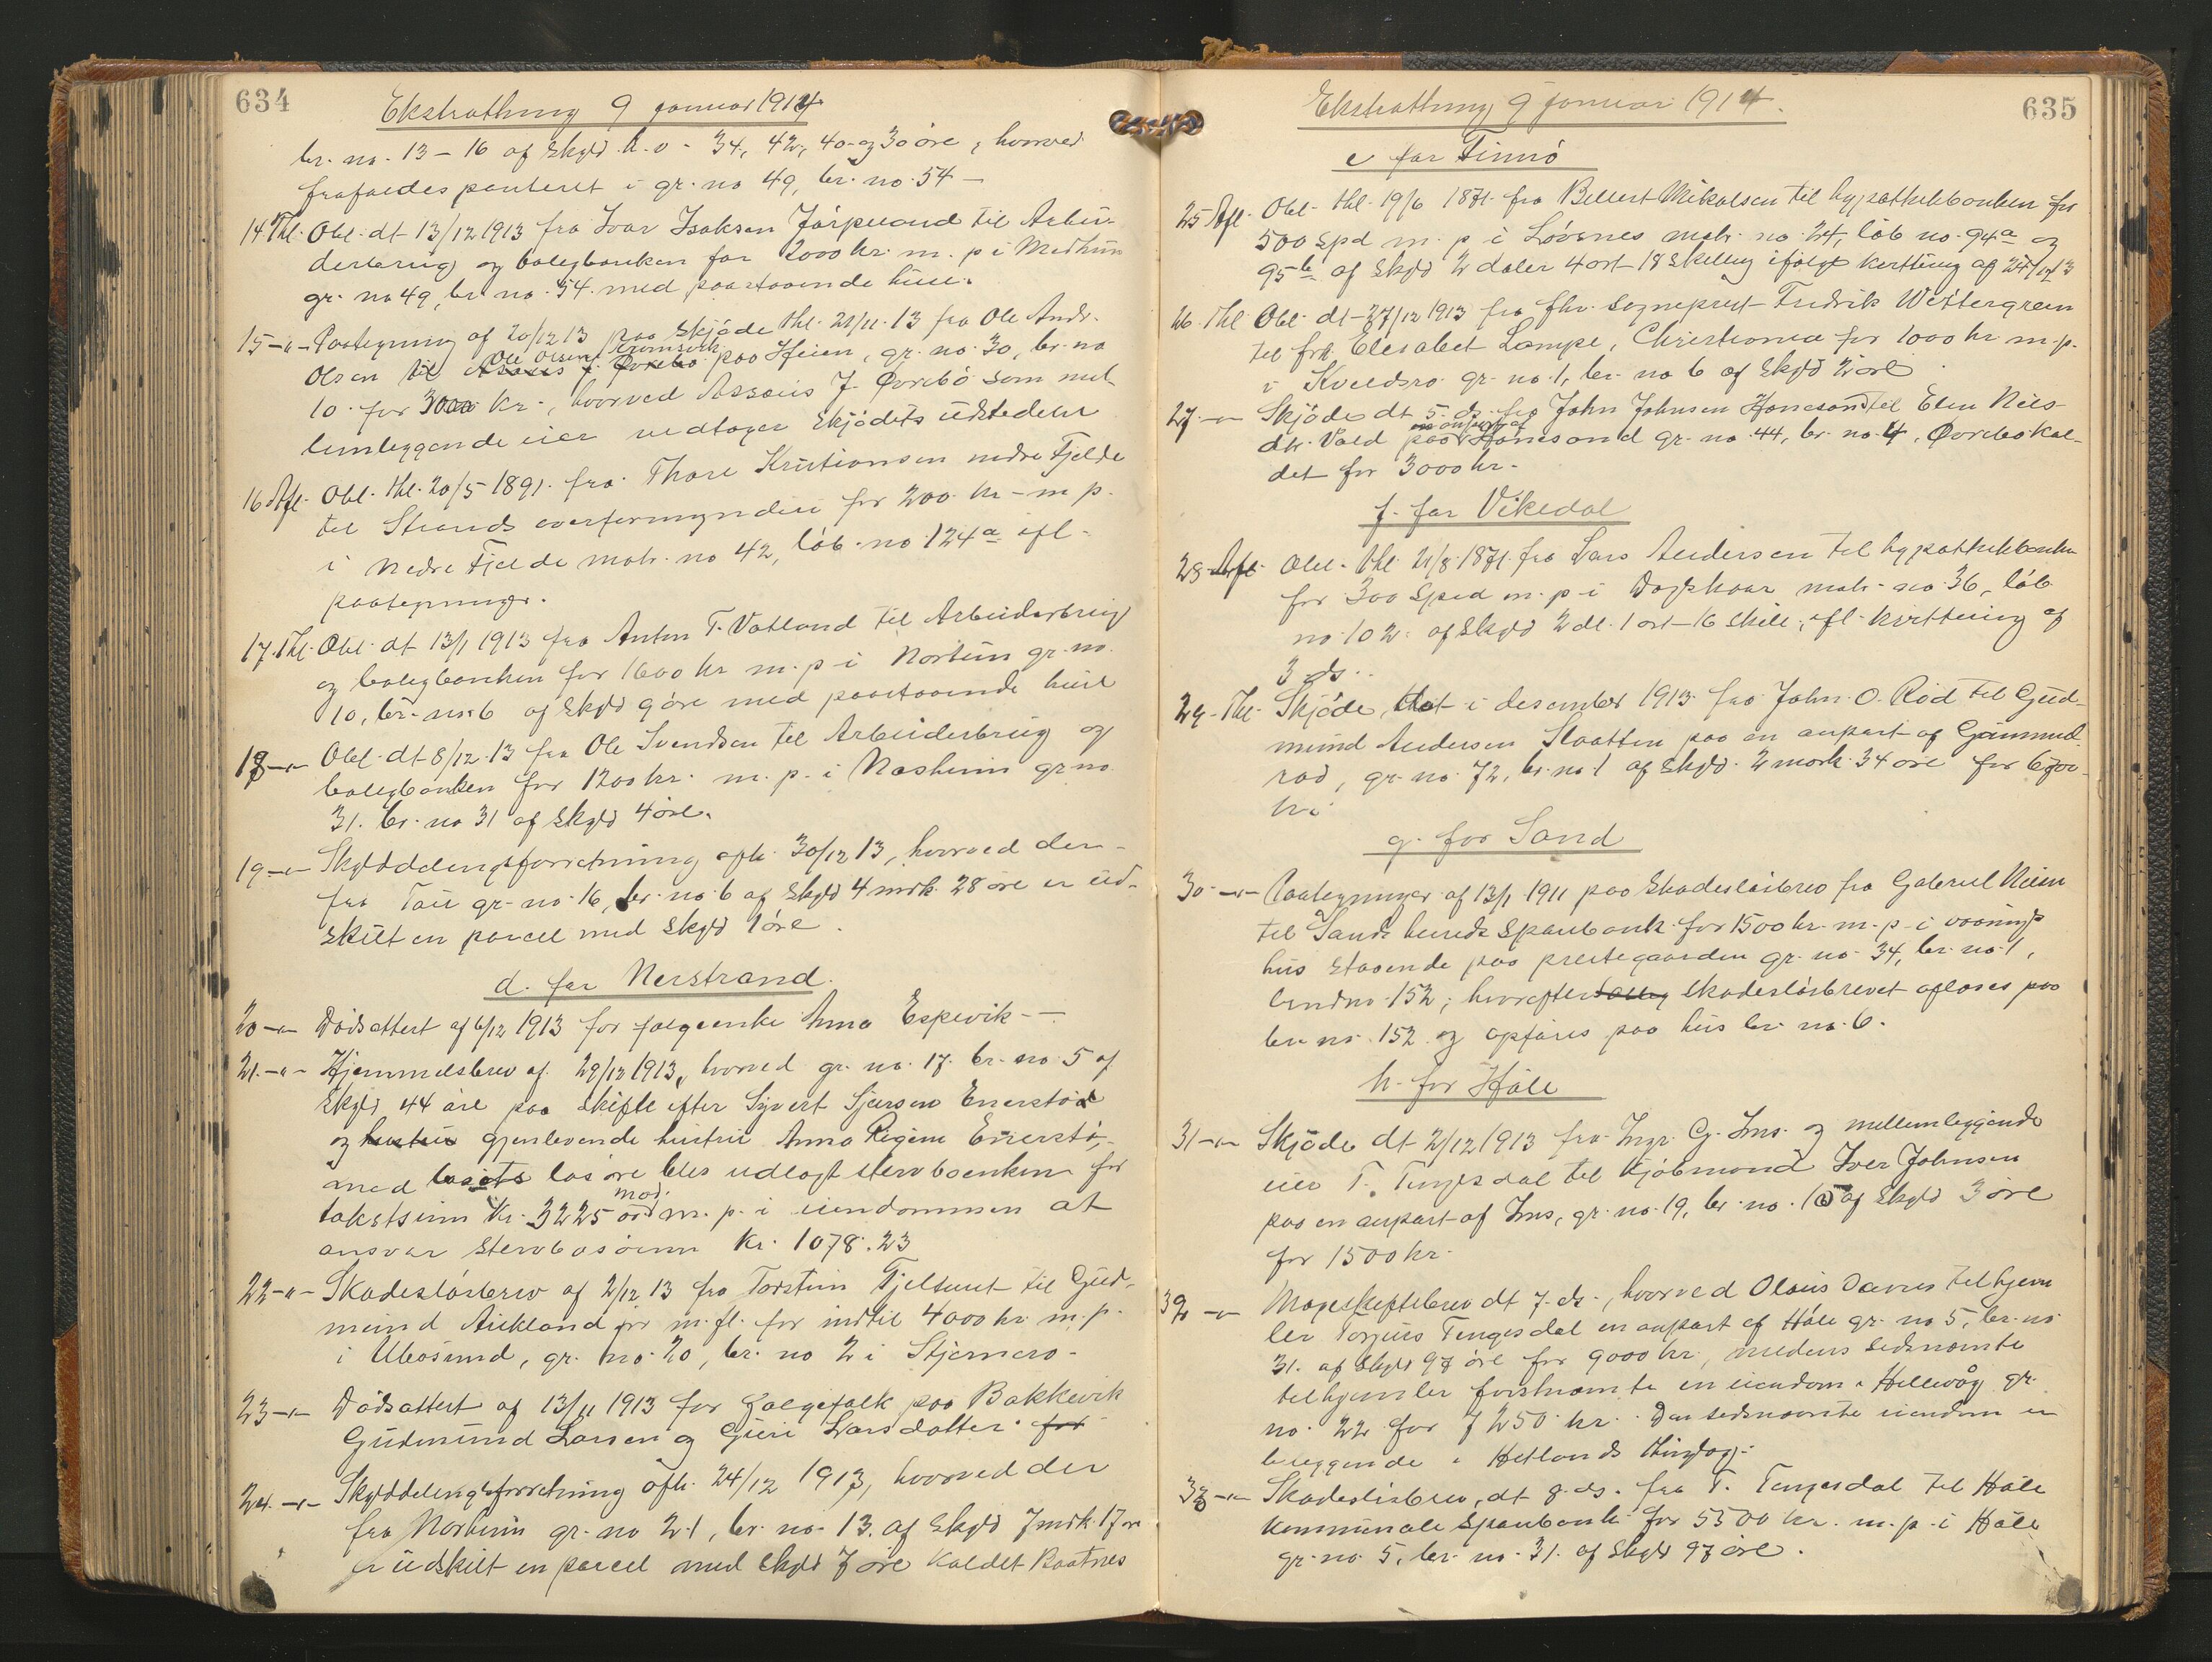 634
Ekstrathing 9 januar 1914
br. no. 13 – 16 af skyld h.v. 34, 42, 40 og 30 øre, hvorved
frafaldes panteret i gr. no 49, br. no. 54 –
14 Thl. Obl. dt 13/12 1913 fra Ivar Isaksen Jørpeland til Arbei-
derbrug og boligbanken for 2000 kr. m. p i Medhun
gr. no 49, br. no. 54. med paastaaende huse.
15 –"– Paategning af 20/12 13 paa skjøde thl. 21/11. 13 fra Ole Andr.
Ole Olsen
Olsen til paa Heien, gr. no. 30, br. no
10 for 3000 kr., hvorved Assaris J. Øvrebø som mel-
lemliggende eier vedtager skjødets udstedelse
16 Afl. Obl. thl. 20/5 1891. fra Thore Kristiansen nedre Fjelde
til Strands overformynderi for 200 kr – m p.
i nedre Fjelde matr. no 42, løb. no 124a ifl.
paategninger.
17. Thl. Obl. dt 13/1 1913 fra Anton T. Vatland til Arbeiderbrug
og boligbanken for 1600 kr m. p i Norheim gr. no.
10, br. no. 6 af skyld 9 øre med paastaaende huse
18 –"– Obl. dt 8/12. 13 fra Ole Svendsen til Arbeiderbrug og
boligbanken for 1200 kr. m. p. i Nasheim gr no.
31. br. no 31 af skyld 4 øre.
19 –"– Skylddelingsforretning afh. 30/12 13, hvorved der
fra Tau gr. no. 16, br. no 6 af skyld 4 mrk. 28 øre er ud-
skilt en parcel med skyld 1 øre.
d. for Nerstrand.
20 –"– Dødsattest af 6/12 1913 for folgeenke Anna Espevik –
21. –"– Hjemmelsbrev af. 29/12 1913, hvorved gr. no. 17. br. no 5 af
skyld 44 øre paa skifte efter Syvert Sjursen Ennerstø
og hustru gjenlevende hustru Anna Regine Ennerstø,
med løsøre blev udlagt stervboenken for
mod.
takstsum kr. 3225 ord m. p. i eiendommen at
ansvar stervbosønn kr. 1078. 23
22 –"– Skadesløsbrev af 2/12 13 fra Torstein Fjeltunet til Gud-
mund Aukland jr m. fl. for indtil 4000 kr. m. p.
i Ubøsund, gr. no. 20, br. no 2 i Stjernerø.
23 –"– Dødsattest af 13/11 1913 for folgefolk paa Bakkevik
Gudmund Larsen og Guri Larsdatter for
24. –"– Skylddelingsforretning afh. 24/12 1913, hvorved der
fra Norheim gr. no 21, br. no. 13. af skyld 7 mrk. 17 øre
er udskilt en parcel med skyld 7 øre kaldet Raatnes
Ekstrathing 9 januar 1914.
635
e for Finnø
25 Afl. Obl. thl. 19/6 1871. fra Bellest Mikalsen til hypothekbanken for
500 spd m. p i Løvsnes matr. no. 24, løb no. 94a og
95b af skyld 2 daler 4 ort 18 skilling ifølge kvittering af
26. Thl. Obl. dt 27/12 1913 fra fhv. sogneprest Fredrik Westergreen
til frk. Elisabet Lampe, Christiania for 1000 kr m. p.
i Kveldsro gr. no. 1, br. no 6 af skyld 2 øre
27. –"– Skjøde dt 5. ds. fra John Johnsen Hanesand til Elen Niels-
en anpart af
dtr. Vold paa Hanesand gr. no. 44, br. no. 4, Øvrebø kal-
det for 3000 kr.
f. for Vikedal
28. Afl. Obl. thl. 21/8. 1871. fra Lars Andersen til hypothekbanken
for 300 spd m. p i Dagskaar matr. no. 36, løb
no. 102. af skyld 2 dl. 1 ort – 16 skill., ifl. kvittering af
3 ds.
29. Thl. Skjøde, dt i desember 1913 fra John O. Rød til Gud-
mund Andersen Slaatten paa en anpart af Gammel-
rød, gr. no. 72, br. no. 1 af skyld. 2 mark 34 øre for 6700
kr.
g. for Sand
30 –"– Paategninger af 13/1 1911 paa skadesløsbrev fra Gabriel Neim
til Sands herreds sparebank for 1500 kr. m. p. i vaanings
hus staaende paa prestegaarden gr. no. 34, br. no. 1,
brndno. 152; hvorefter skadesløsbrevet afløses paa
br. no. 152 og opføres paa hus br. no. 6.
h. for Høle
31 –"– Skjøde dt 2/12 1913 fra Ingr. G. Ims. og mellemliggende
eier T. Tengesdal til kjøbmand Iver Johnsen
paa en anpart af Ims, gr. no. 19, br. no. 15 af skyld 3 øre
for 1500 kr.
32 –"– Mageskiftebrev dt 7. ds., hvorved Olaus tilhjem
ler Torjus Tengesdal en anpart af Høle gr. no 5, br. no.
31. af skyld 97 øre for 9000 kr., medens sidsnævnte
tilhjemler førstnævnte en eiendom i Hillevåg gr.
no. 22 for 7250 kr. Den sidsnævnte eiendom er
beliggende i Hetlands thinglag.
33 –"– Skadesløsbrev, dt 8. ds. fra T. Tengesdal til Høle
kommunale sparebank for 5500 kr. m. p. i Høle
gr. no. 5, br. no. 31. af skyld 97 øre.